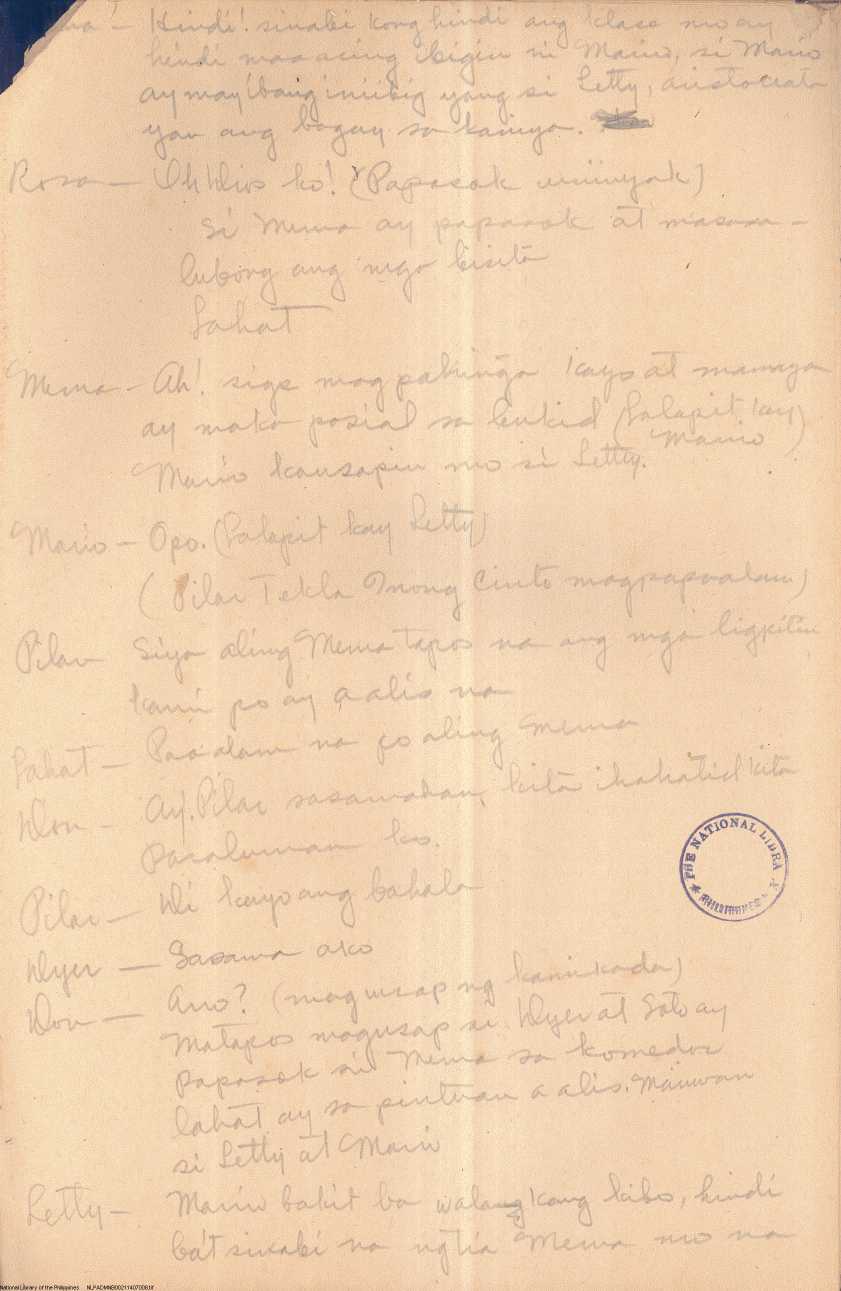 Hindi! sinabi kong hindi ang klase mo ay
hindi maaaring ibigin ni Mario, si Mario
ay may ibang iniibig yang si Letty, aristocrata
yan ang bagay sa kaniya.
Rosa - Oh Dios ko! (Papasok umiiyak)
Si Mema ay papasok at masasa-
lubong ang mga bisita
Lahat
Mema - Ah! sige magpahinga kayo at mamaya
ay maka pasial sa bukid (Lalapit kay
Mario)
Mario kausapin mo si Letty.
Mario - Opo. (Lalapit kay Letty)
(Pilar Tekla Inong Cinto magpapaalam)
Pilar Siya aling Mema tapos na ang mga ligpitin
kami po ay aalis na
Lahat - Paalam na po aling Mema
Don - Ay. Pilar sasamahan kita ihahatid kita
Paraluman ko.
Pilar - Di kayo ang bahala
Dyer - Sasama ako
Don - Ano? (mag usap ng
Matapos magusap si Dyer at Soto ay
papasok si Mema sa komedor
lahat ay sa pintuan a alis. Maiiwan
si Letty at Mario
Letty - Mario bakit ba walang kang kibo, hindi
ba't sinabi na ng tia Mema mo na
THE NATIONAL LIBRARY
PHILIPPINES
National Library of the Philippines NLPADMNB00211407008.tif